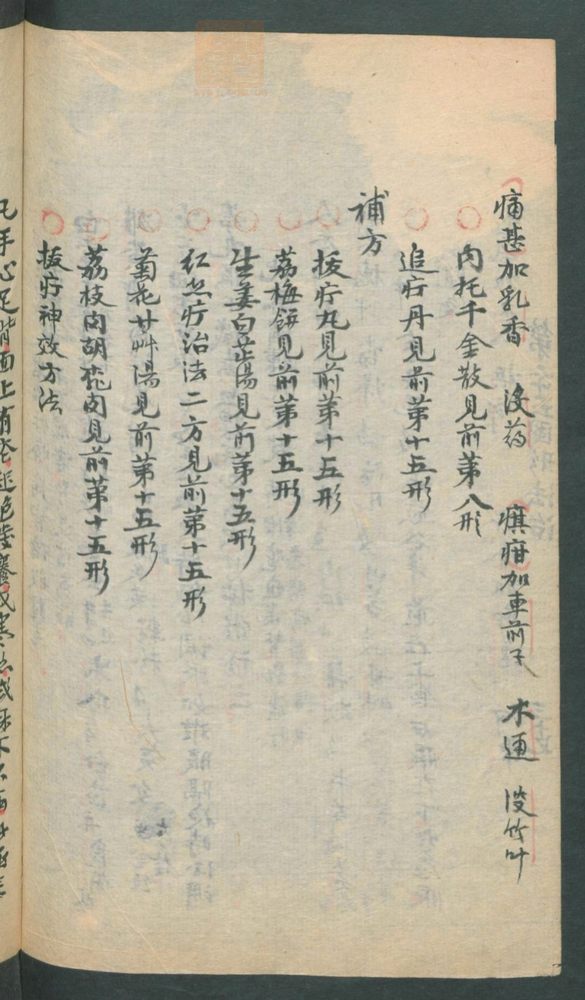 痛甚加乳香 沒药 癀疳加車前子 木通 淡竹叶
內托千金散見前第八形
追疔丹見前第十五形
補方
拔疔丸見前第十五形
荔梅餅見前第十五形
生姜白芷湯見前第十五形
红丝疔治法二方見前第十五形
菊花甘艸湯見前第十五形
荔枝肉胡桃肉見前第十五形
拔疔神效方法
凡手心足背面上有